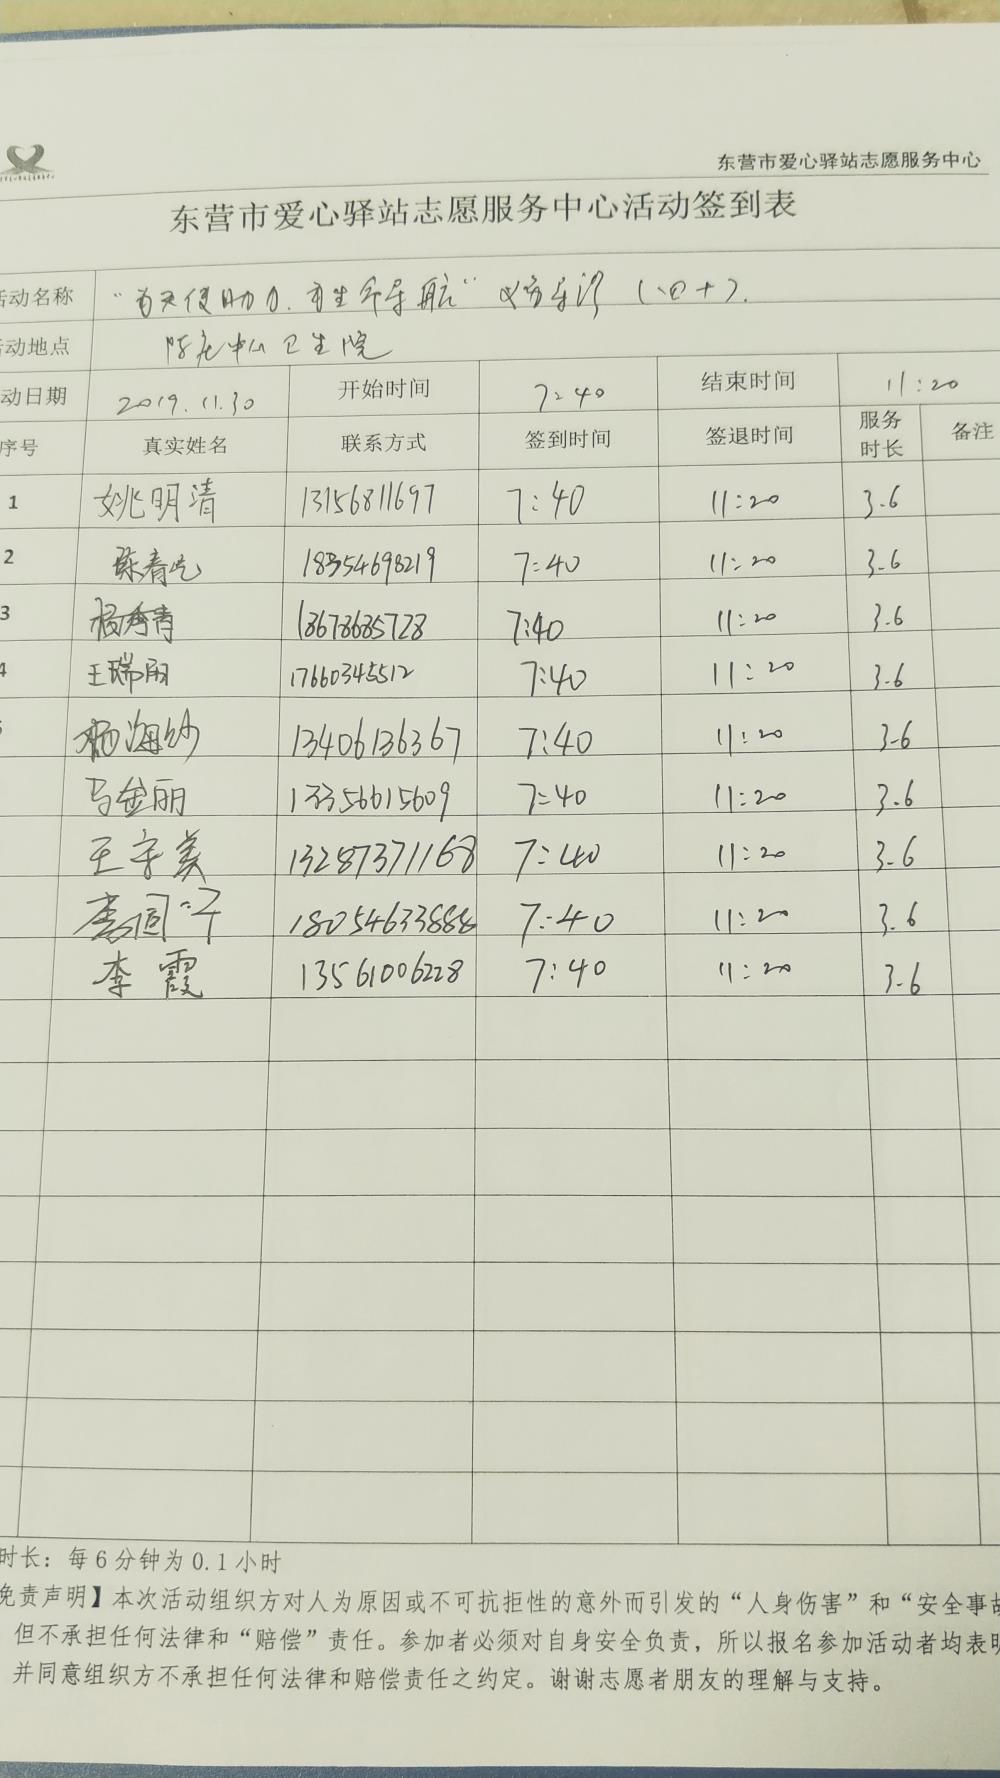 东营市爱心驿站志愿服务中心
东营市爱心驿站志愿服务中心活动签到表
活动名称 “为天使助力.为生命导航”义务导诊(四十).
活动地点 陈庄中心卫生院
动日期 2019.11.30 开始时间 7:40 结束时间 11:20
序号 真实姓名 联系方式 签到时间 签退时间 服务时长 备注
1 姚明清 13156811697 7:40 11:20 3.6
2 陈春 18354698219 7:40 11:20 3.6
3 杨秀青 18678685728 7:40 11:20 3.6
4 王瑞丽 17660345512 7:40 11:20 3.6
杨海妙 13406136367 7:40 11:20 3.6
马金丽 13356615609 7:40 11:20 3.6
王守美 13287371168 7:40 11:20 3.6
18054633888 7:40 11:20 3.6
李霞 13561006228 7:40 11:20 3.6
时长：每6分钟为0.1小时
免责声明】本次活动组织方对人为原因或不可抗拒性的意外而引发的“人身伤害”和“安全事故
但不承担任何法律和“赔偿”责任。参加者必须对自身安全负责，所以报名参加活动者均表明
并同意组织方不承担任何法律和赔偿责任之约定。谢谢志愿者朋友的理解与支持。